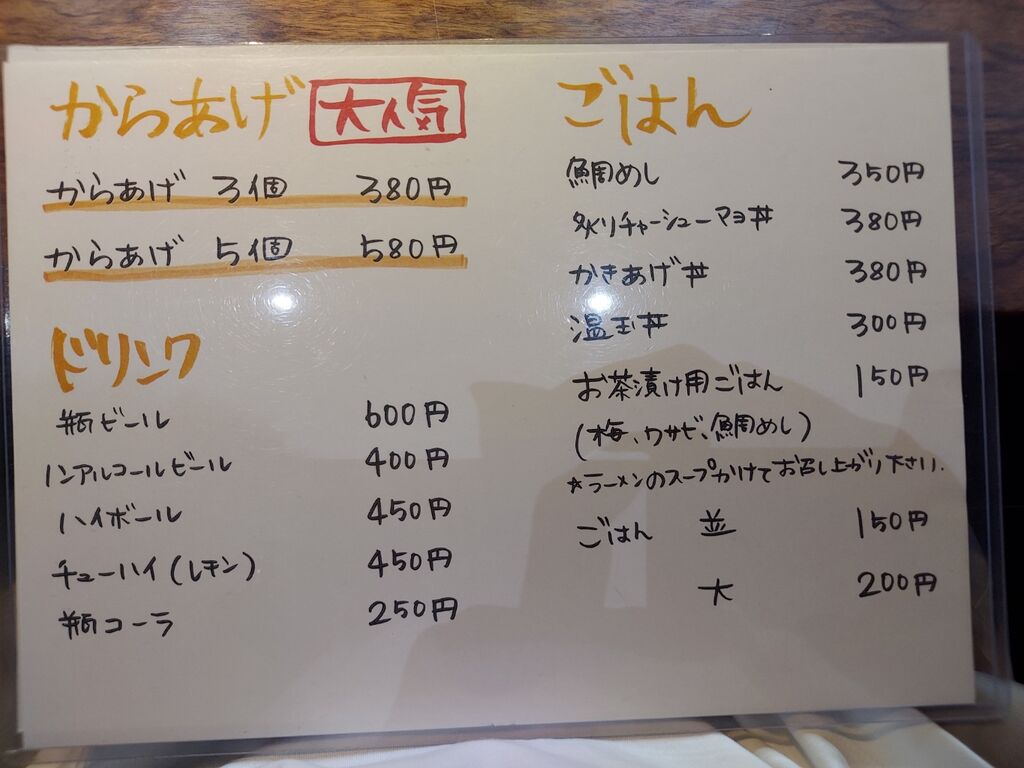 からあげ 大人気
からあげ 3個 380円
からあげ 5個 580円
ドリンク
瓶ビール 600円
ノンアルコールビール 400円
ハイボール 450円
チューハイ(レモン) 450円
瓶コーラ 250円
ごはん
鯛めし 350円
炙りチャーシューマヨ丼 380円
かきあげ丼 380円
温玉丼 300円
お茶漬け用ごはん 150円
(梅、ワサビ、鯛めし)
*ラーメンのスープかけてお召し上がり下さい.
ごはん 並 150円
大 200円